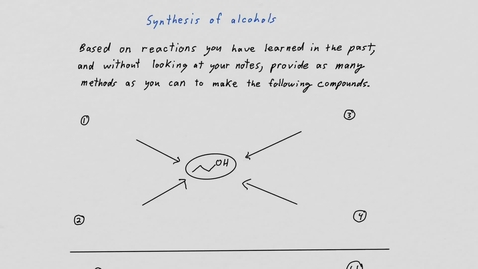 Synthesis of alcohols
Based on reactions you have learned in the past,
and without looking at your notes, provide as many
methods as you can to make the following compounds.
① ③
OH
② ④